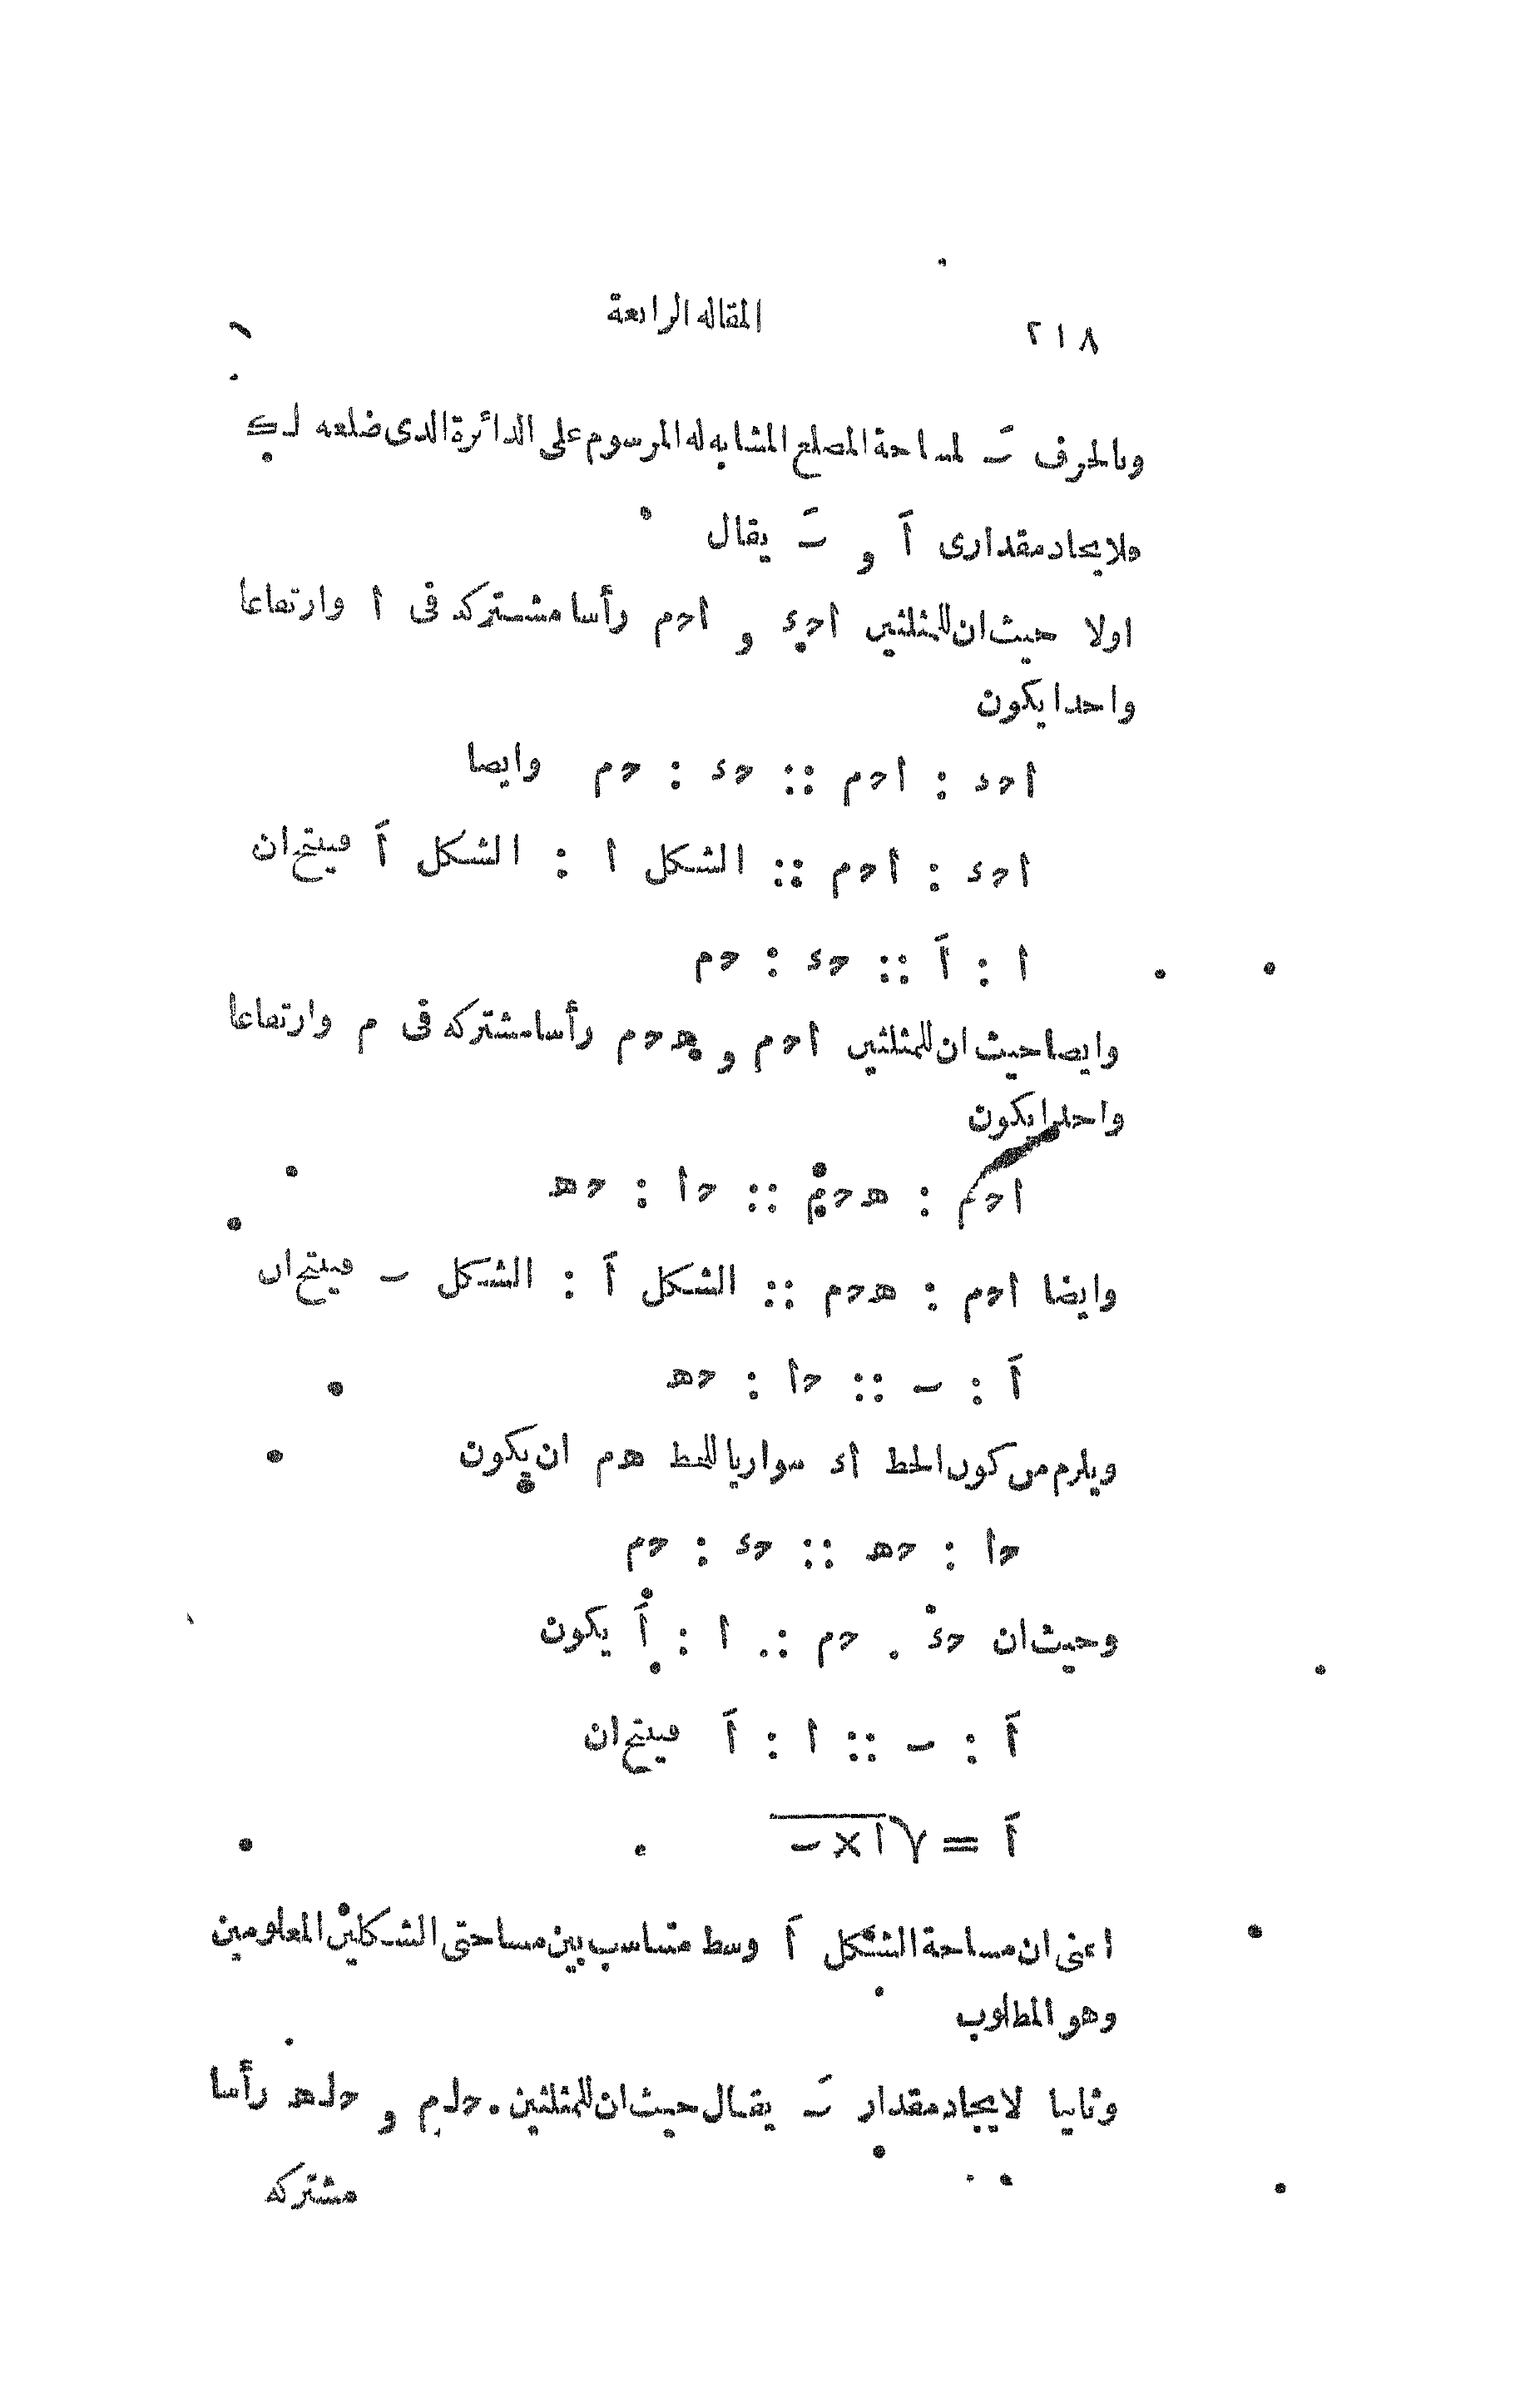 ٢١٨ المقاله الرابعة
وبالحرف بَ لمساحة المضلع المشابه له المرسوم على الدائرة الذى ضلعه لك
ولايجاد مقدارى اَ و بَ يقال
اولا حيث ان للمثلثين احء و احم رأسا مشتركه فى ا وارتفاعا
واحدا يكون
احء : احم :: حء : حم وايضا
احء : احم :: الشكل ا : الشكل اَ فينتج ان
ا : اَ :: حء : حم
وايضا حيث ان للمثلثين احم و هحم رأسا مشتركه فى م وارتفاعا
واحدا يكون
احم : هحم :: حا : حه
وايضا احم : هحم :: الشكل اَ : الشكل ب فينتج ان
اَ : ب :: حا : حه
ويلزم من كون الخط اء موازيا للخط هم ان يكون
حا : حه :: حء : حم
وحيث ان حء : حم :: ا : اَ يكون
اَ : ب :: ا : اَ فينتج ان
اَ = √ا×ب
اعنى ان مساحة الشكل اَ وسط متناسب بين مساحتى الشكلين المعلومين
وهو المطلوب
وثانيا لايجاد مقدار بَ يقال حيث ان للمثلثين حلم و حله رأسا
مشتركه